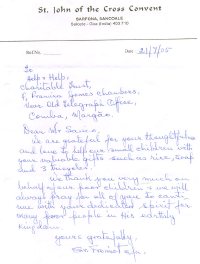 St. John of the Cross Convent
SARFONA, SANCOALE
Salcete - Goa (India) 403 710
Ref. No. Date 21/7/05
To
Help & Help,
Charitable Trust,
Near Old Telegraph Office,
Comba, Margao.
Dear Mr
We are grateful for your thoughtfulness
and love to help our small children with
your valuable gifts such as rice, soap
and 3 bicycles.
We thank you very much on
behalf of our poor children & we will
always pray for all of you to continue
with your dedicated spirit for
many poor people in His earthly
Kingdom.
Yours gratefully,
Sr.